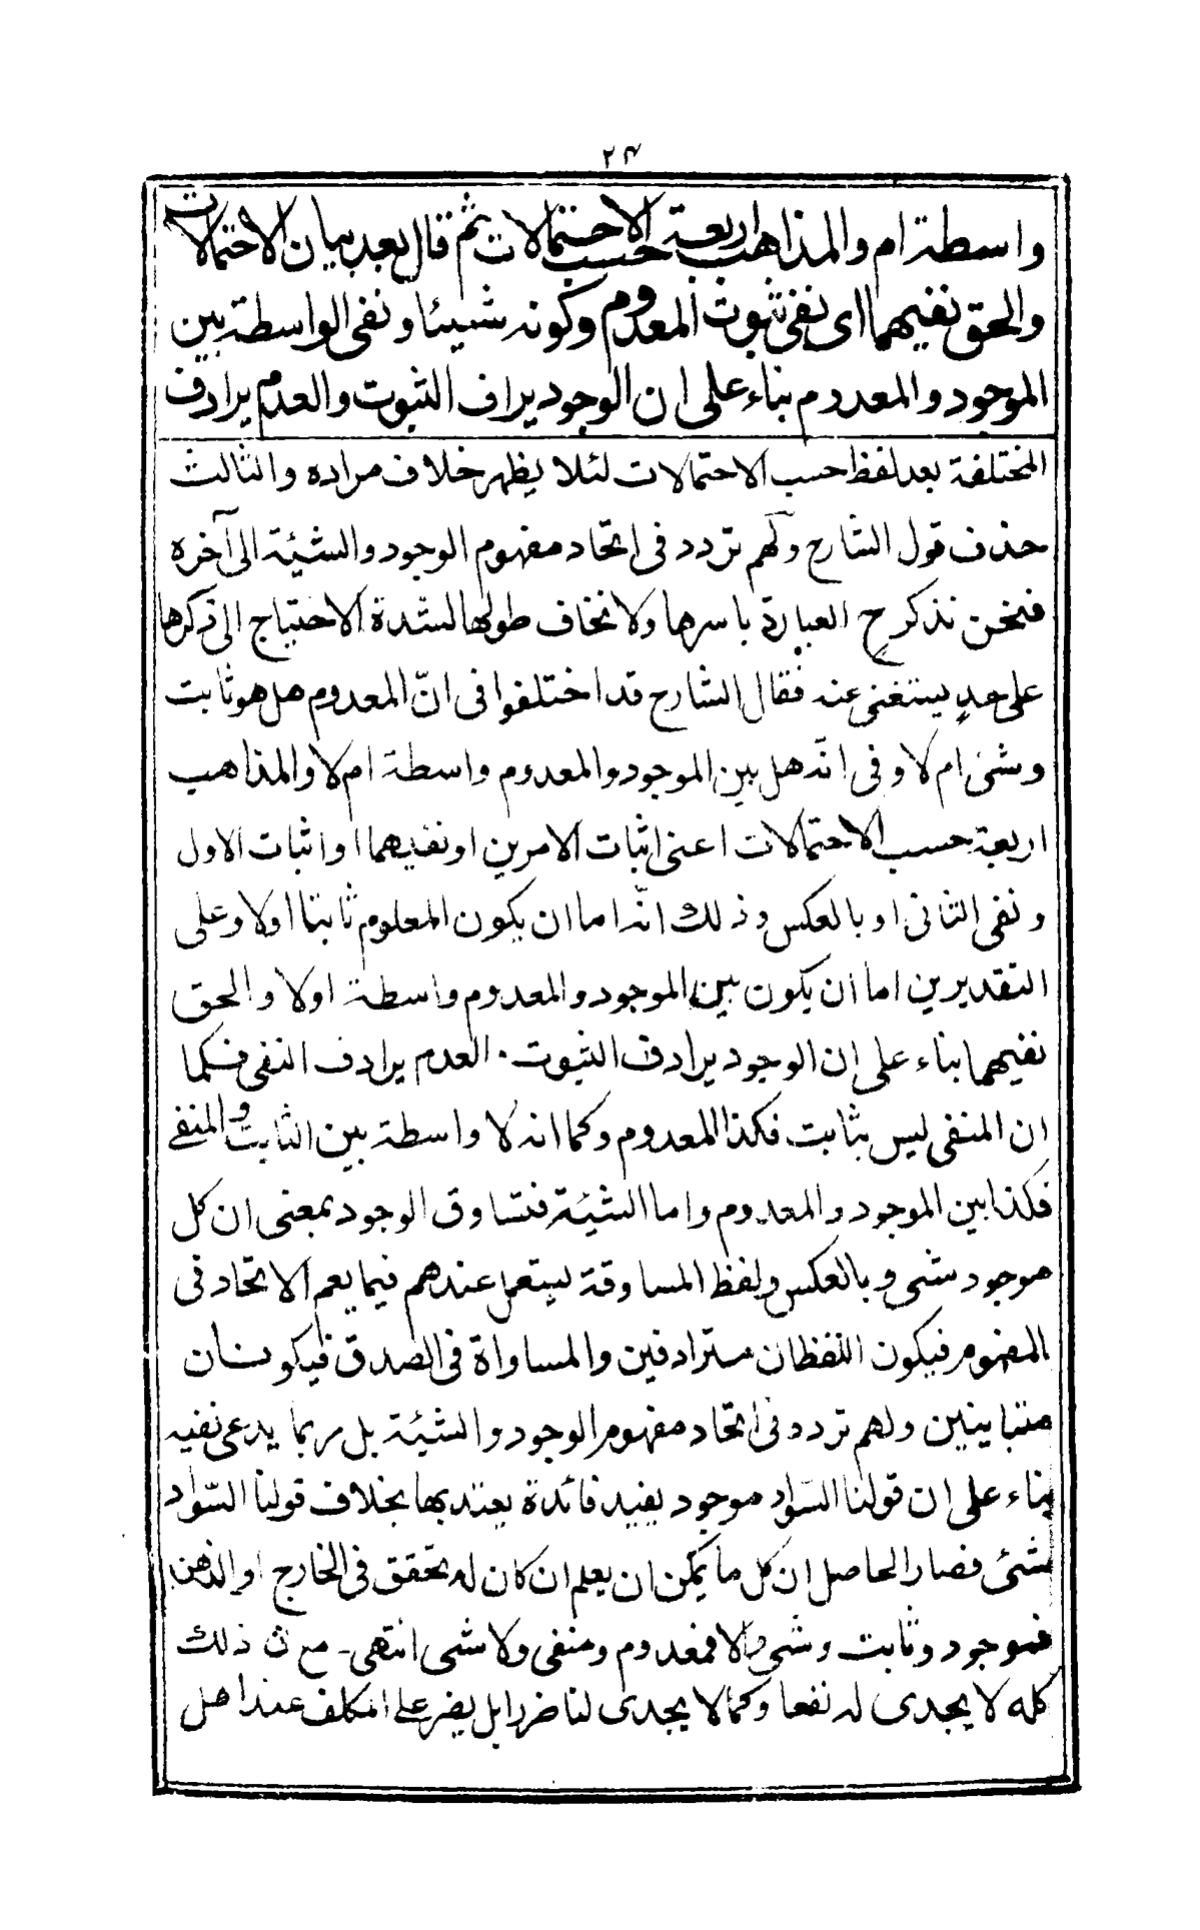 ٢٤
واسطة ام والمذاهب اربعة حسب الاحتمالات ثم قال بعد بيان الاحتمالات
والحق نفيهما اى نفى ثبوت المعدوم وكونه شيئا ونفى الواسطة بين
الموجود والمعدوم بناء على ان الوجود يراف الثبوت والعدم يرادف
المختلفة بعد لفظ حسب الاحتمالات لئلا يظهر خلاف مراده والثالث
حذف قول الشارح ولهم تردد فى اتحاد مفهوم الوجود والشيئة الى آخره
فنحن نذكر ح العبارة باسرها ولا نخاف طولها لشدة الاحتياج الى ذكرها
على حدٍ يستغنى عنه فقال الشارح قد اختلفوا فى انّ المعدوم هل هو ثابت
وشئ ام لا وفى انّه هل بين الموجود والمعدوم واسطة ام لا والمذاهب
اربعة حسب الاحتمالات اعنى اثبات الامرين او نفيهما او اثبات الاول
ونفى الثانى او بالعكس وذلك انّه اما ان يكون المعلوم ثابتا اولا وعلى
التقديرين اما ان يكون بين الموجود والمعدوم واسطة اولا والحق
نفيهما بناء على ان الوجود يرادف الثبوت . العدم يرادف النفى فكما
ان المنفى ليس بثابت فكذا المعدوم وكما انه لا واسطة بين الثابت والمنفى
فكذا بين الموجود والمعدوم واما الشيئة فتساوق الوجود بمعنى ان كل
موجود شى وبالعكس ولفظ المساوقة يستعمل عندهم فيما يعم الاتحاد فى
المفهوم فيكون اللفظان مترادفين والمساواة فى الصدق فيكونان
متباينين ولهم تردد فى اتحاد مفهوم الوجود والشيئة بل ربما يدعى نفيه
بناء على ان قولنا السّواد موجود يفيد فائدة يعتد بها بخلاف قولنا السّواد
شئى فصار الحاصل ان كل ما يمكن ان يعلم ان كان له تحقق فى الخارج او الذهن
فموجود وثابت وشى والا فمعدوم ومنفى ولا شى انتهى۔ مع ذلك
كله لا يجدى له نفعا وكما لا يجدى لنا ضررا بل يضر على المكلف عند اهل